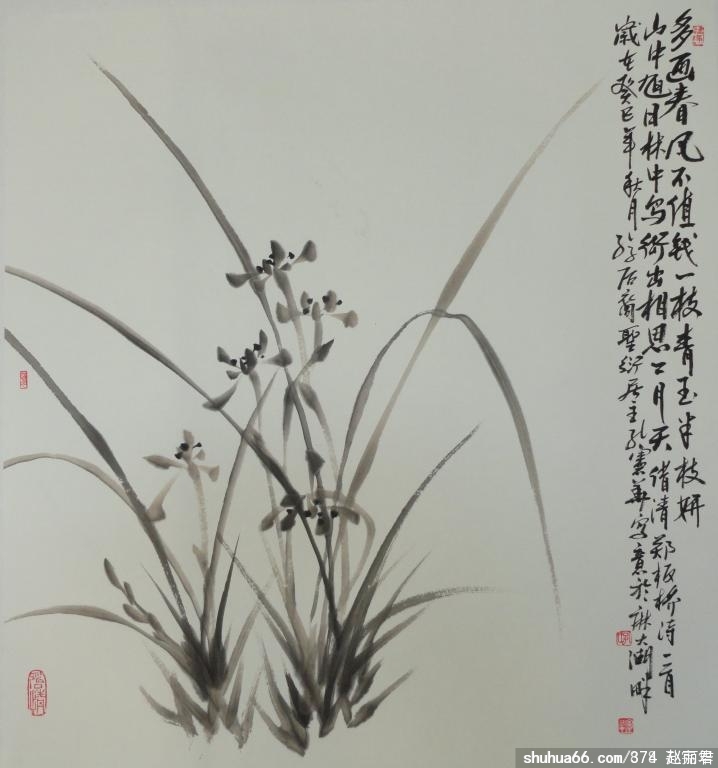 多画春风不值钱一枝青玉半枝妍
山中旭日林中鸟衔出相思二月天借清郑板桥诗一首
岁在癸巳年秋月 居 圣衍居主孔宪华写意於 大湖畔
shuhua66.com/374 赵丽君